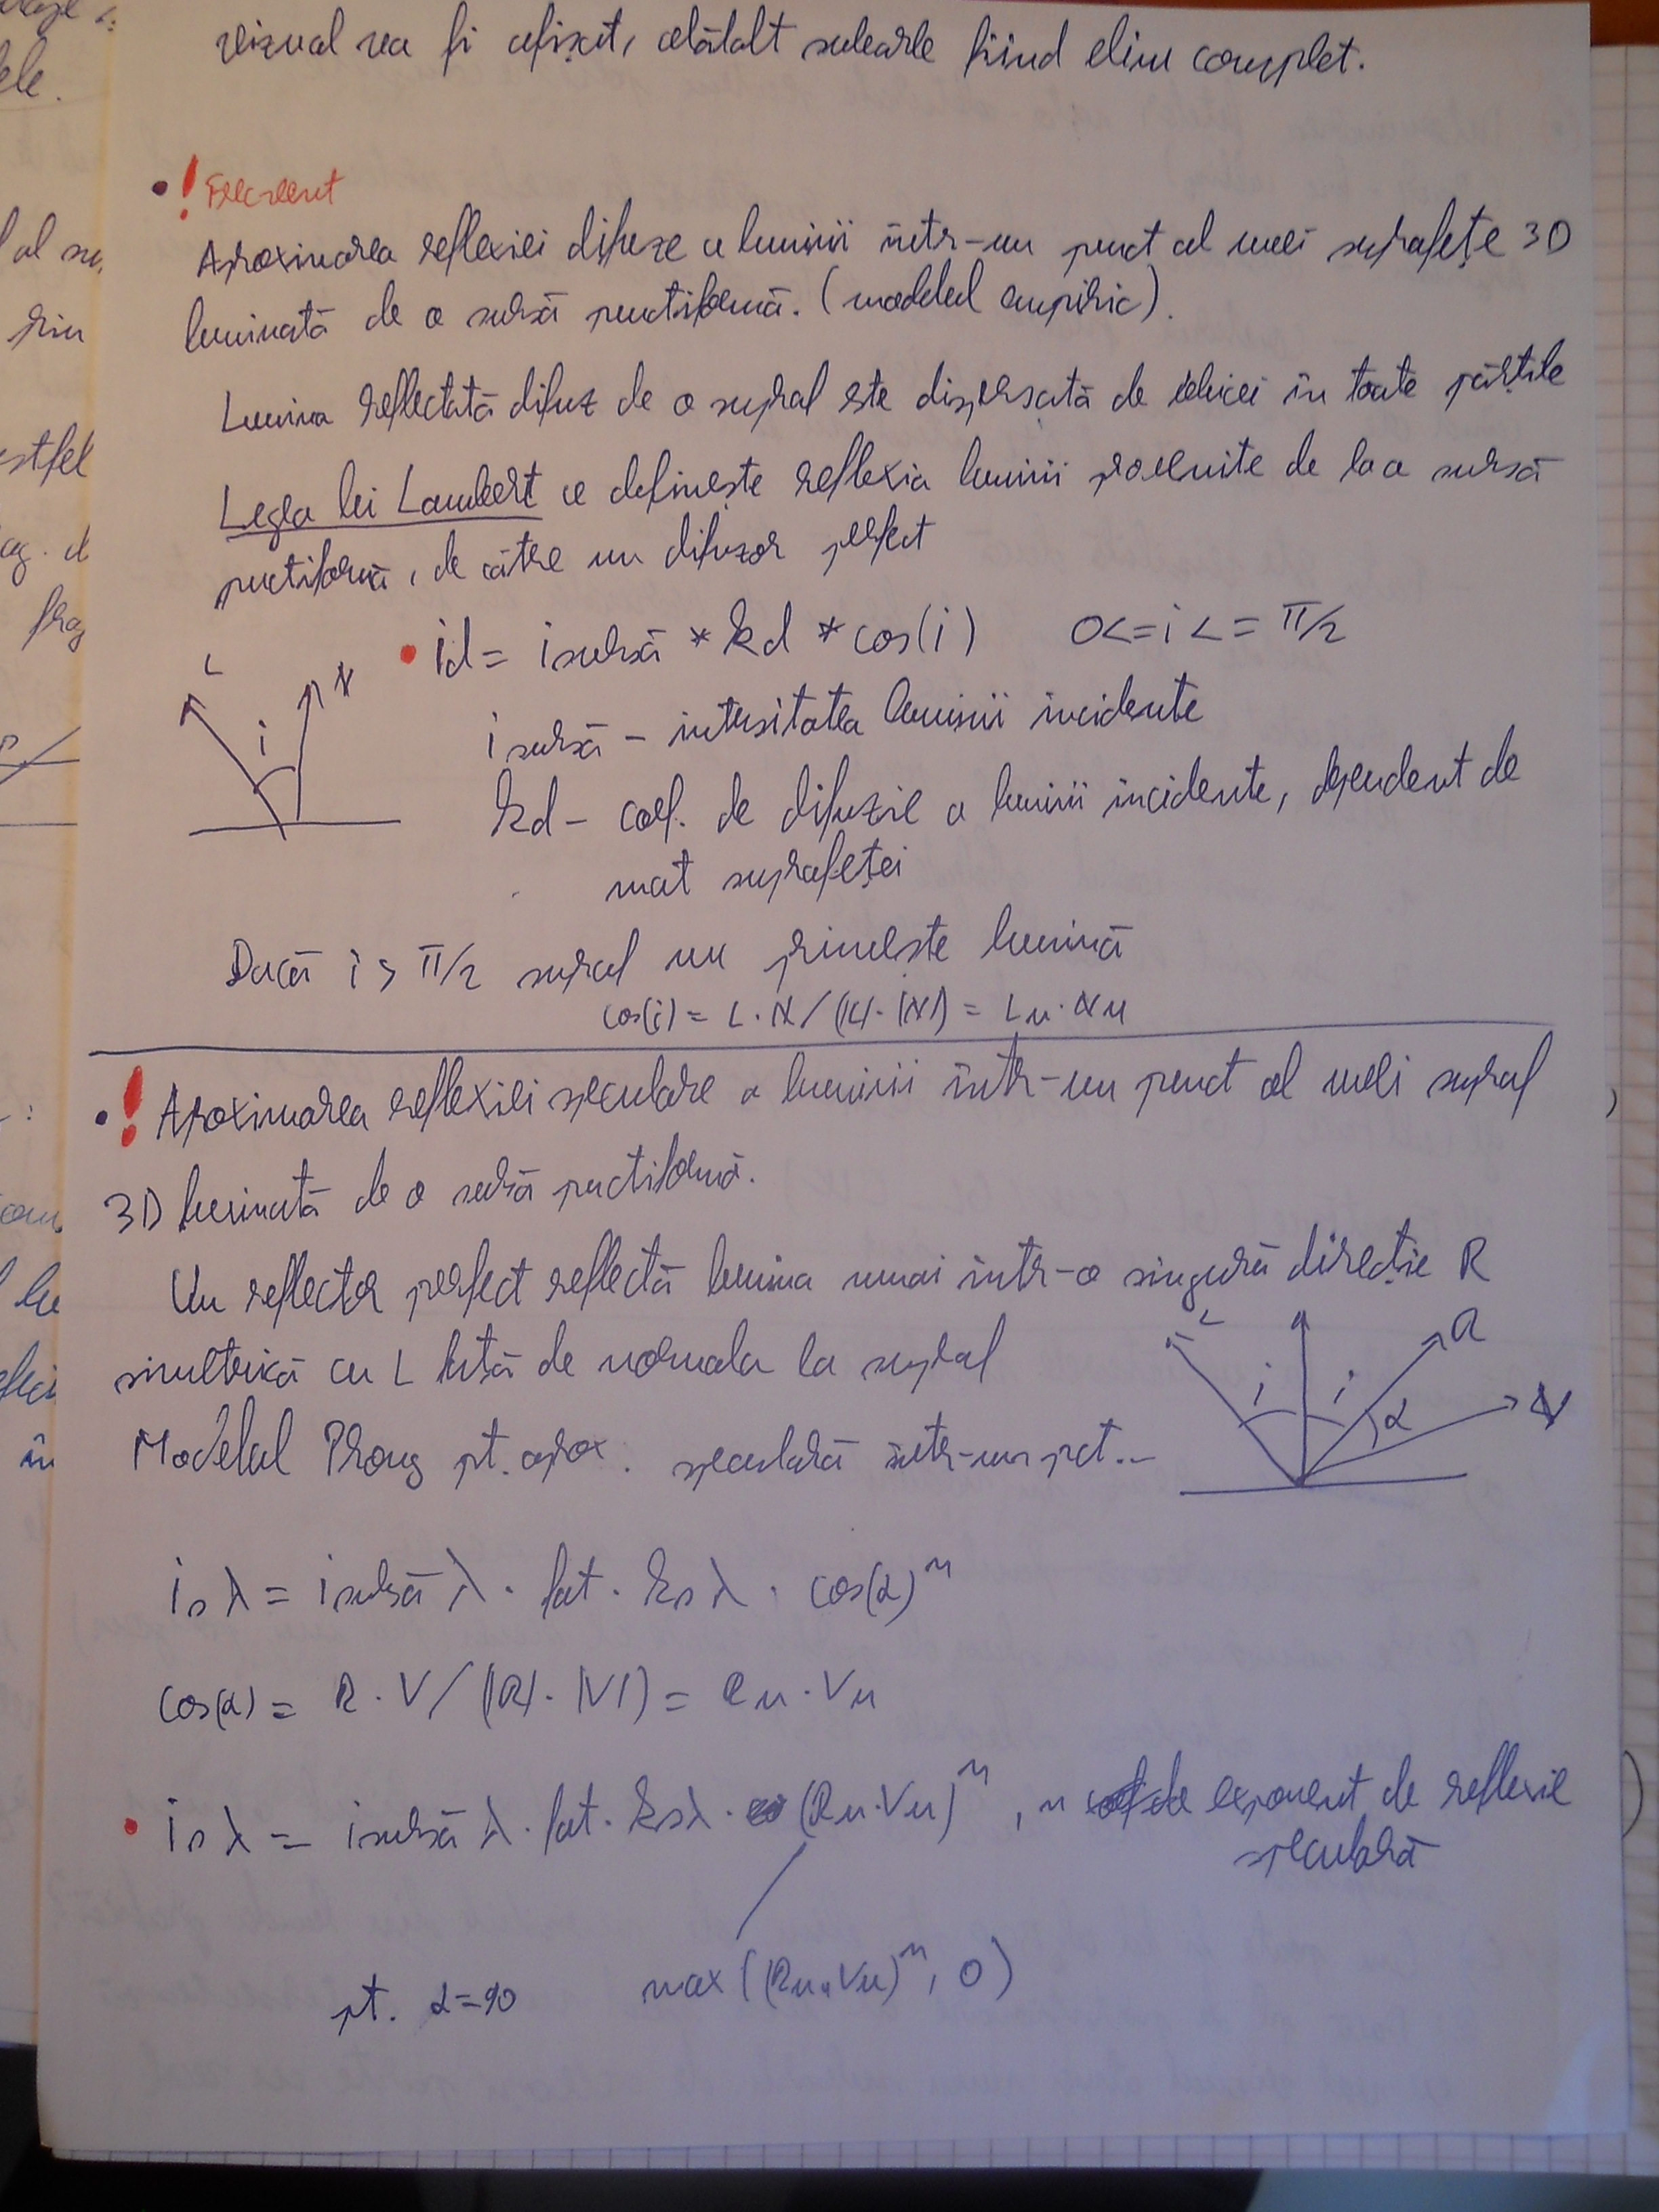 vizual va fi afișat, celălalt suboarle fiind elim complet.
! Frecvent
Aproximarea reflexiei difuze a luminii într-un punct al unei suprafețe 3D
luminată de o sursă punctiformă. (modelul empiric).
Lumina reflectată difuz de o supraf este dispersată de obicei în toate părțile
Legea lui Lambert ce definește reflexia luminii provenite de la o sursă
punctiformă, de către un difuzor perfect
• id = isursă * kd * cos(i) 0<=i<= π/2
L N
i
isursă - intensitatea luminii incidente
kd - coef. de difuzie a luminii incidente, dependent de
mat suprafeței
Dacă i > π/2 supraf nu primește lumină
cos(i) = L·N/(|L|·|N|) = Lu·Nu
• ! Aproximarea reflexiei speculare a luminii într-un punct al unei supraf
3D luminată de o sursă punctiformă.
Un reflector perfect reflectă lumina numai într-o singură direcție R
simetrică cu L față de normala la supraf
L R
i i α V
Modelul Phong pt. aprox. speculară într-un pct...
isλ = isursăλ · fat · ksλ · cos(α)^n
cos(α) = R·V/(|R|·|V|) = Ru·Vu
• isλ = isursăλ · fat · ksλ · (Ru·Vu)^n, n exponent de reflexie
speculară
pt. α=90 max((Ru·Vu)^n, 0)